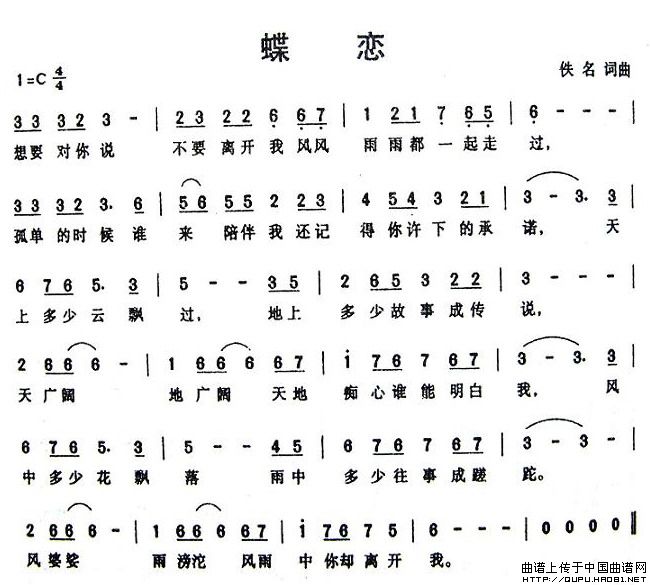 蝶 恋
1=C 4/4
佚名 词曲
33 32 3 - | 23 22 6 67 | 1 21 7 65 | 6 - - - |
想要对你说 不要离开我风风 雨雨都一起走 过,
33 32 3. 6 | 56 55 2 23 | 4 54 3 21 | 3 - 3. 3 |
孤单的时候谁 来 陪伴我还记 得你许下的承 诺, 天
6 76 5. 3 | 5 - - 35 | 2 65 3 22 | 3 - - - |
上多少云飘 过, 地上 多少故事成传 说,
2 66 6 - | 1 66 6 67 | i 76 7 67 | 3 - 3. 3 |
天广阔 地广阔 天地 痴心谁能明白 我, 风
6 76 5. 3 | 5 - - 45 | 6 76 7 67 | 3 - 3 - |
中多少花飘 落 雨中 多少往事成蹉 跎。
2 66 6 - | 1 66 6 67 | i 76 75 | 6 - - - | 0 0 0 0 ‖
风婆娑 雨滂沱 风雨 中你却离开 我。
曲谱上传于中国曲谱网
HTTP://QUPU.HAO81.NET